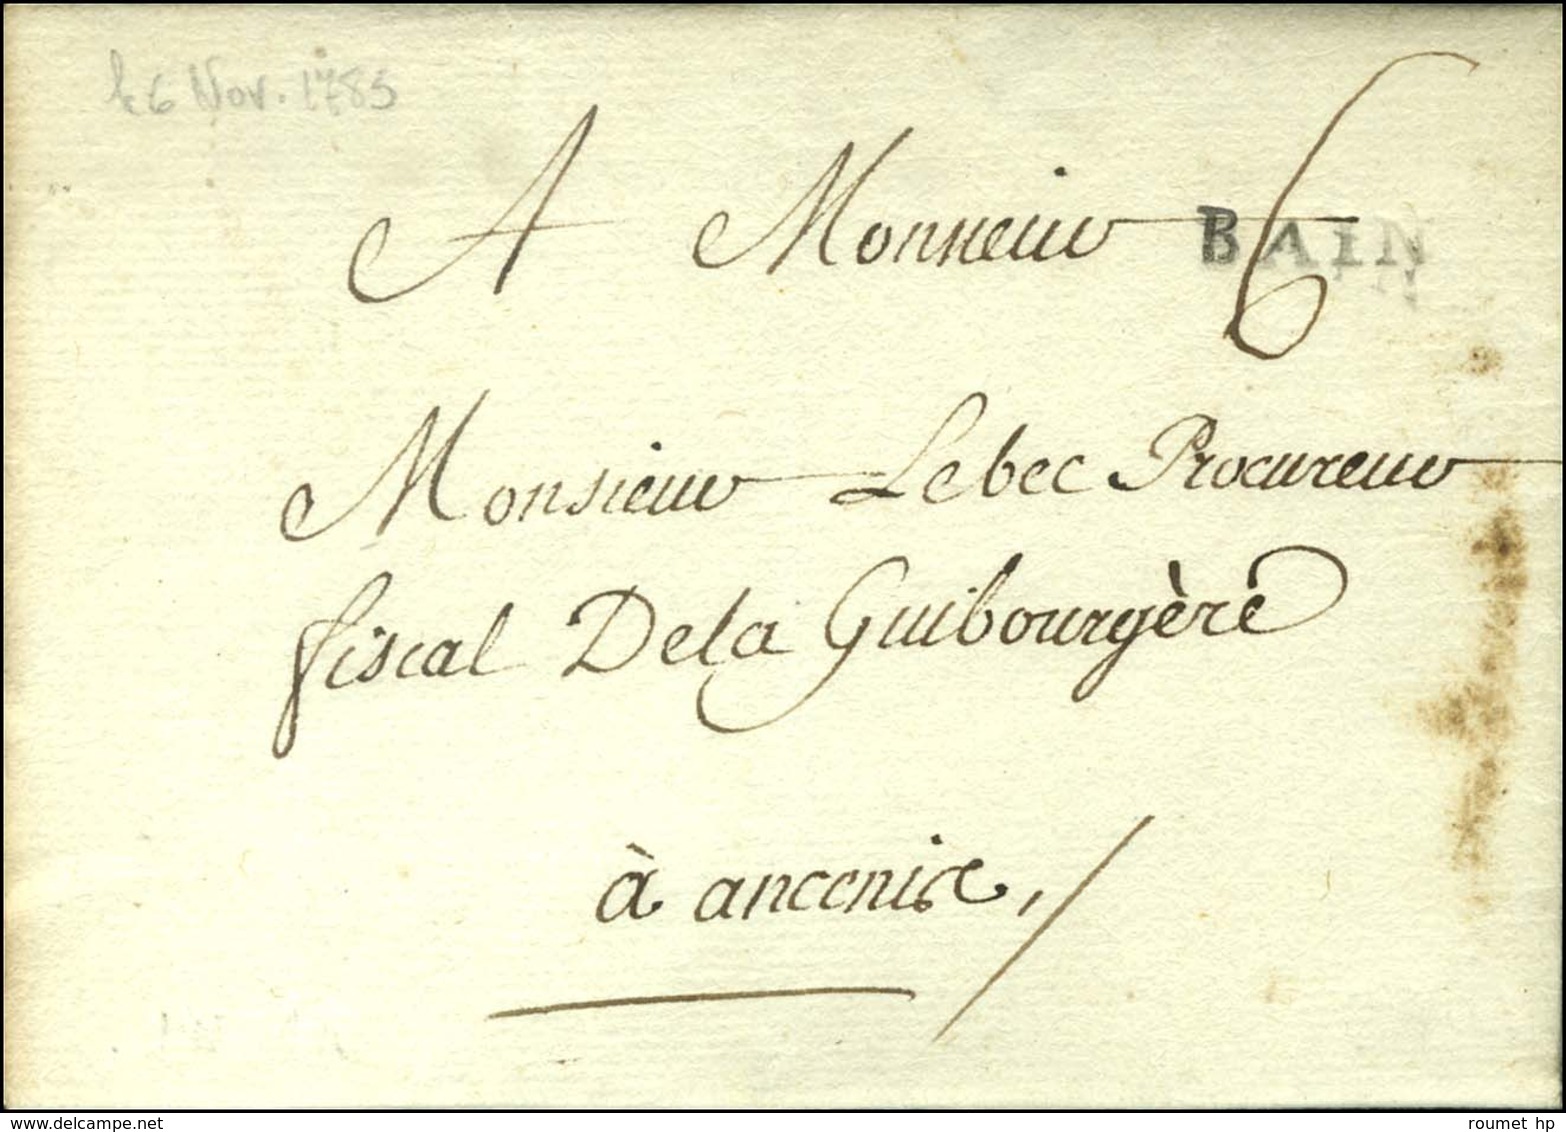 le 6 Nov. 1785
A Monsieur
BAIN
6
Monsieur Lebec Procureur
fiscal Dela Guibourgère
à ancenis,
www.delcampe.net
roumet hp